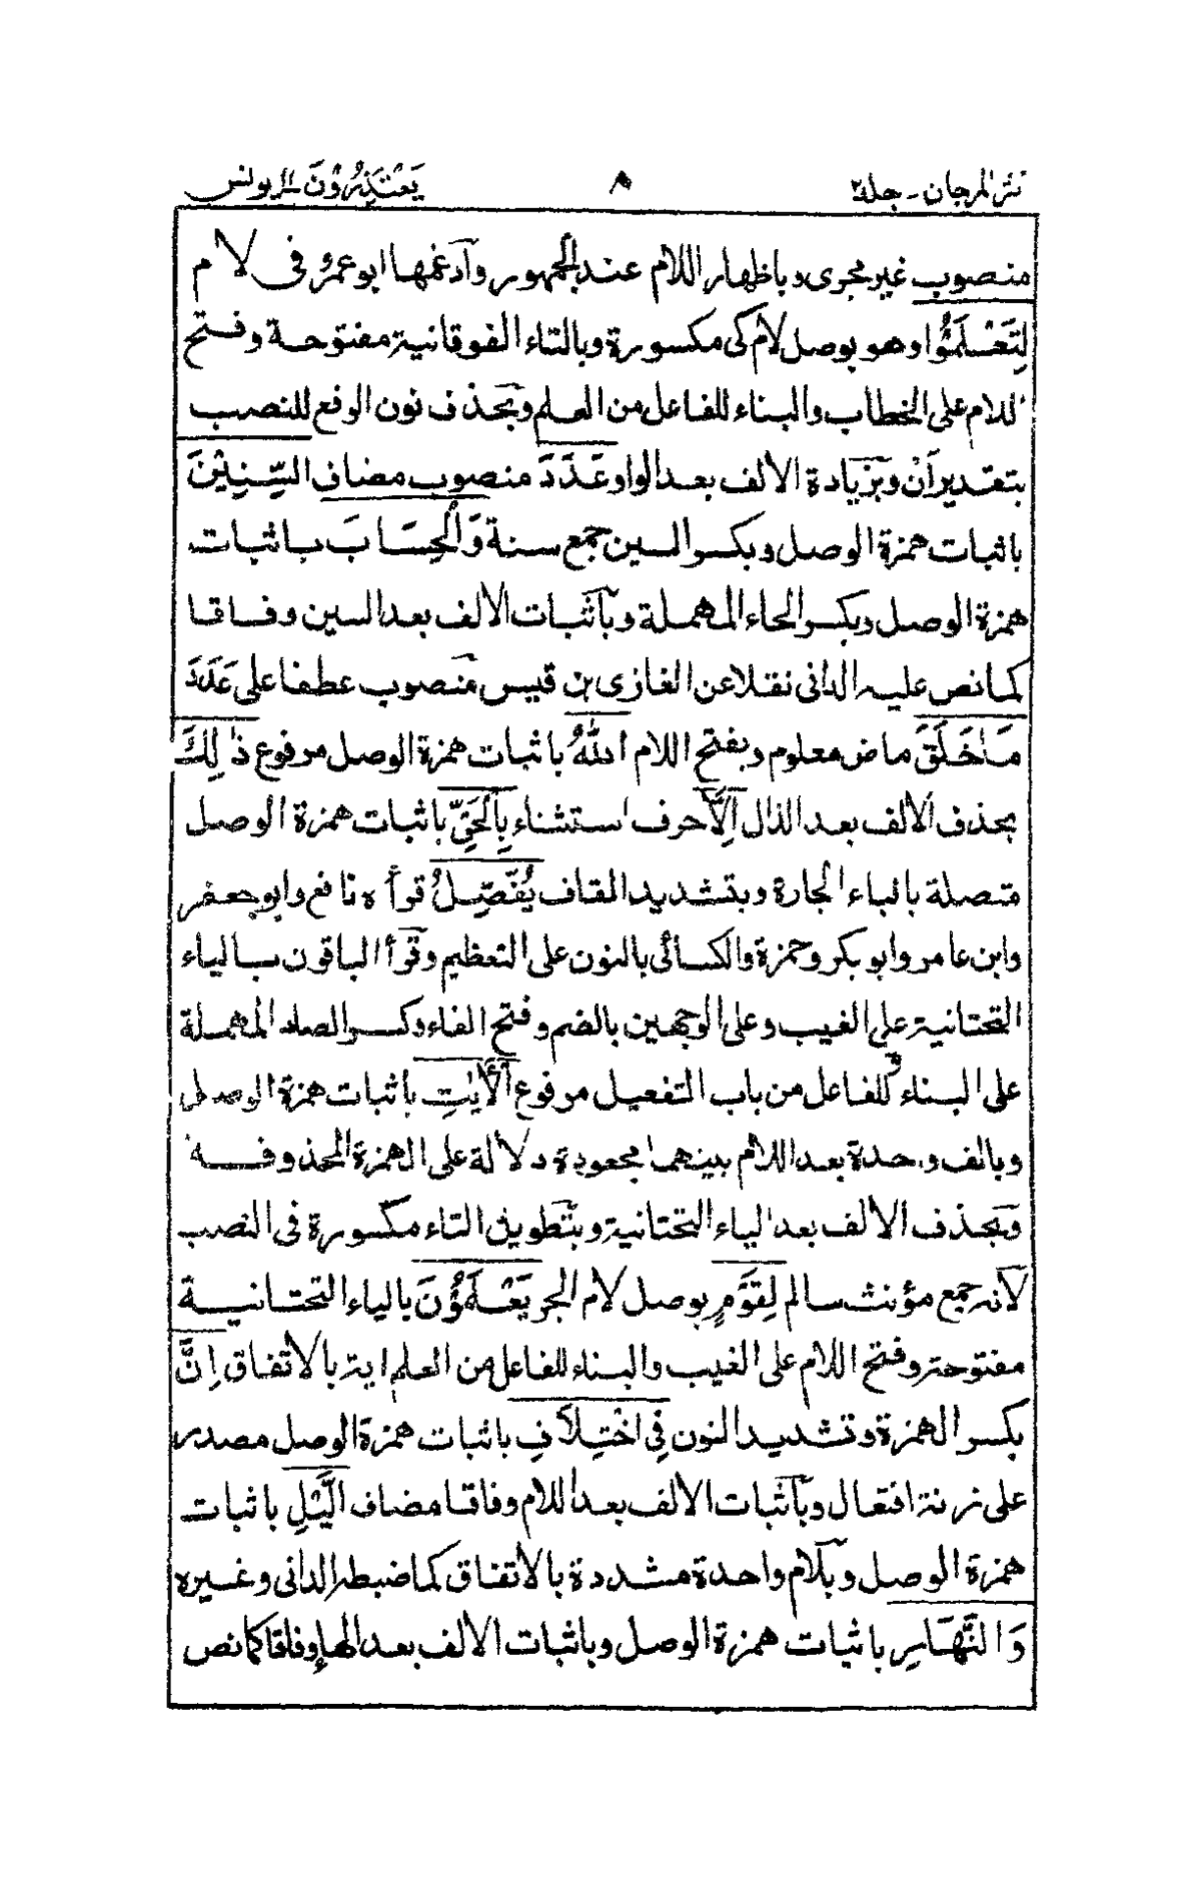 نثر المرجان ـ جلد ٣ ٨ يَعْتَذِرُوْنَ ١١ يونس
منصوب غير مجرى وباظهار اللام عند الجمهور وآدغمها ابو عمرو فى لام
لِتَعْلَمُوْا وهو بوصل لام كى مكسورة وبالتاء الفوقانية مفتوحة وفتح
اللام على الخطاب والبناء للفاعل من العلم وبحذف نون الرفع للنصب
بتقدير آن وبزيادة الالف بعد الواو عَدَدَ منصوب مضاف السِّنِيْنَ
باثبات همزة الوصل وبكسر السين جمع سنة وَالْحِسَابَ باثبات
همزة الوصل وبكسر الحاء المهملة وبآثبات الالف بعد السين وفاقا
كما نص عليه الدانى نقلا عن الغازى بن قيس منصوب عطفا على عَدَدَ
مَا خَلَقَ ماض معلوم وبفتح اللام اللهُ باثبات همزة الوصل مرفوع ذٰلِكَ
بحذف الالف بعد الذال اِلَّا حرف استثناء بِالْحَقِّ باثبات همزة الوصل
متصلة بالباء الجارة وبتشديد القاف يُفَصِّلُ قرأه نافع وابو جعفر
وابن عامر وابو بكر وحمزة والكسائى بالنون على التعظيم وقرأ الباقون بالياء
التحتانية على الغيب وعلى الوجهين بالضم وفتح الفاء وكسر الصاد المهملة
على البناء للفاعل من باب التفعيل مرفوع الْاٰيٰتِ باثبات همزة الوصل
وبالف واحدة بعد اللام بينهما مجعودة دلالة على الهمزة المحذوفة
وبحذف الالف بعد الياء التحتانية وبتطويل التاء مكسورة فى النصب
لآنه جمع مؤنث سالم لِقَوْمٍ بوصل لام الجر يَعْلَمُوْنَ بالياء التحتانية
مفتوحة وفتح اللام على الغيب والبناء للفاعل من العلم اية بالاتفاق اِنَّ
بكسر الهمزة وتشديد النون فِى اخْتِلَافِ باثبات همزة الوصل مصدر
على زنة افتعال وبآثبات الالف بعد اللام وفاقا مضاف الَّيْلِ باثبات
همزة الوصل وبلام واحدة مشددة بالاتفاق كما ضبطه الدانى وغيره
وَالنَّهَارِ باثبات همزة الوصل وباثبات الالف بعد الهاء وفاقا كما نص